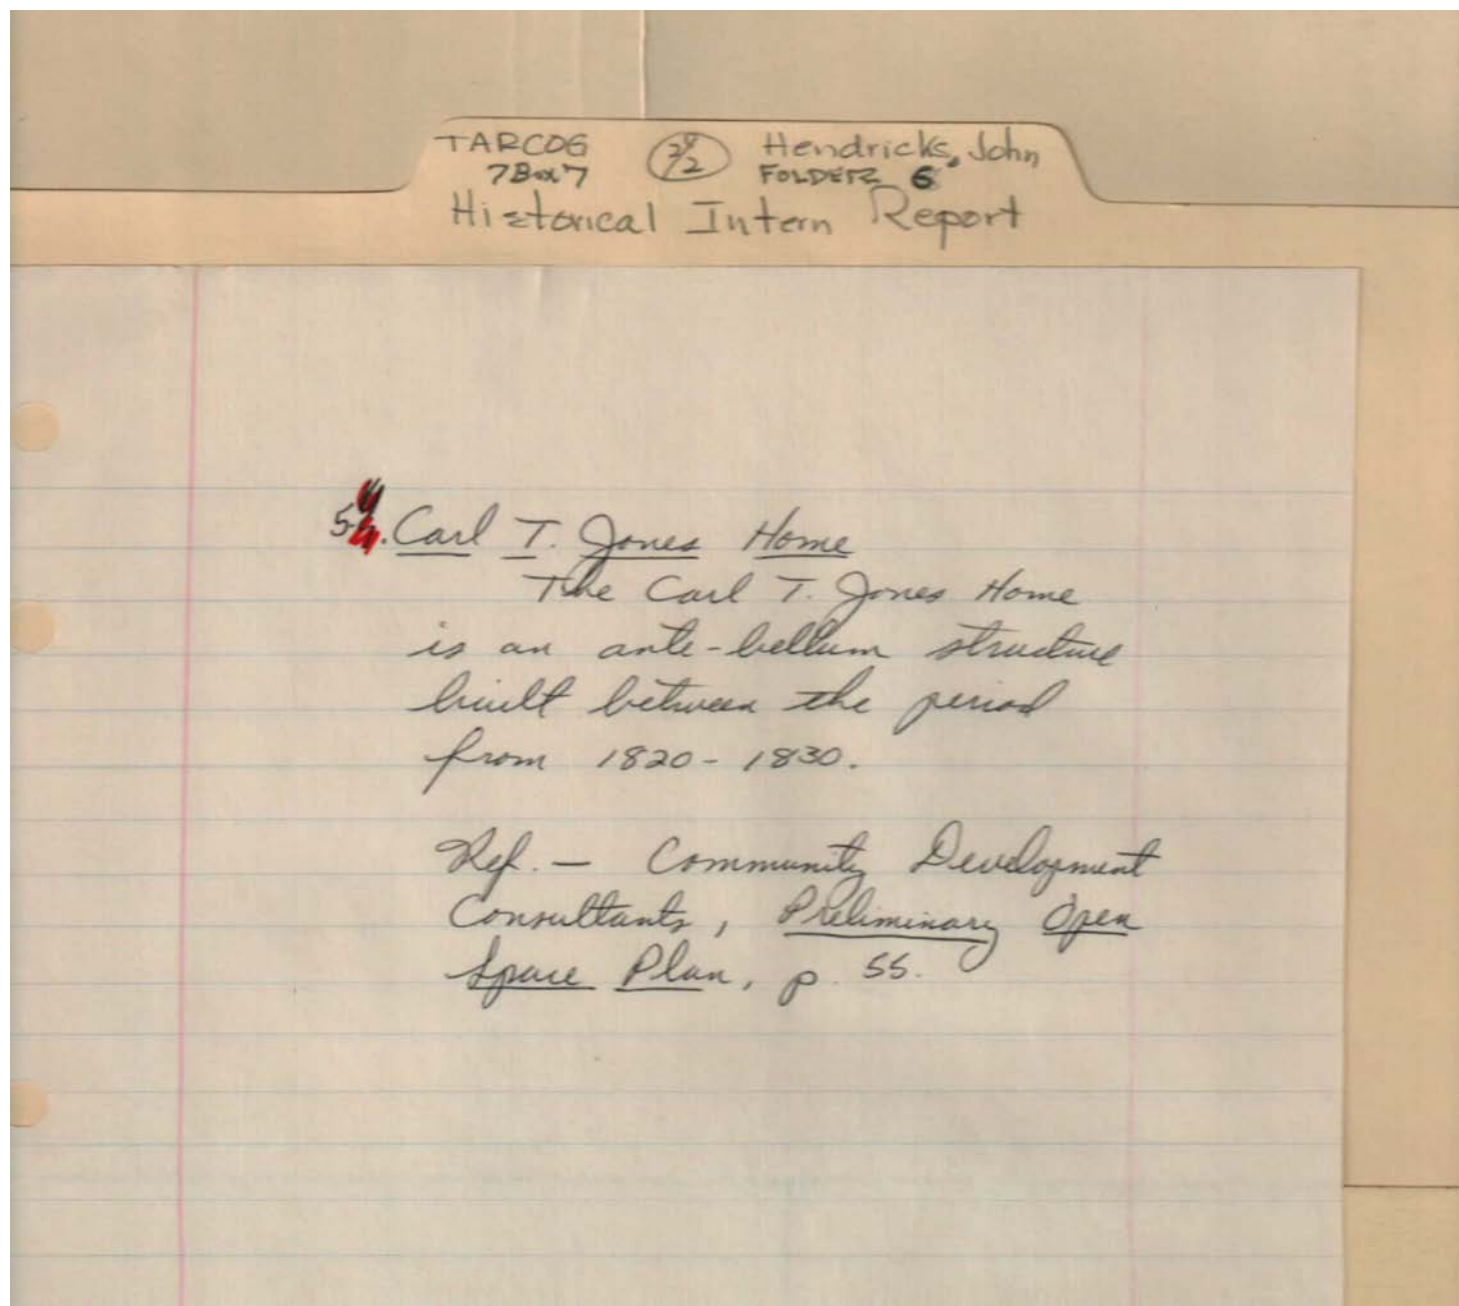 TARCOG 2/2 Hendricks, John
7Box7 FOLDER 6
Historical Intern Report
5 . Carl T. Jones Home
The Carl T. Jones Home
is an ante-bellum structure
built between the period
from 1820 - 1830.
Ref. — Community Development
Consultants, Preliminary Open
Space Plan, p. 55.